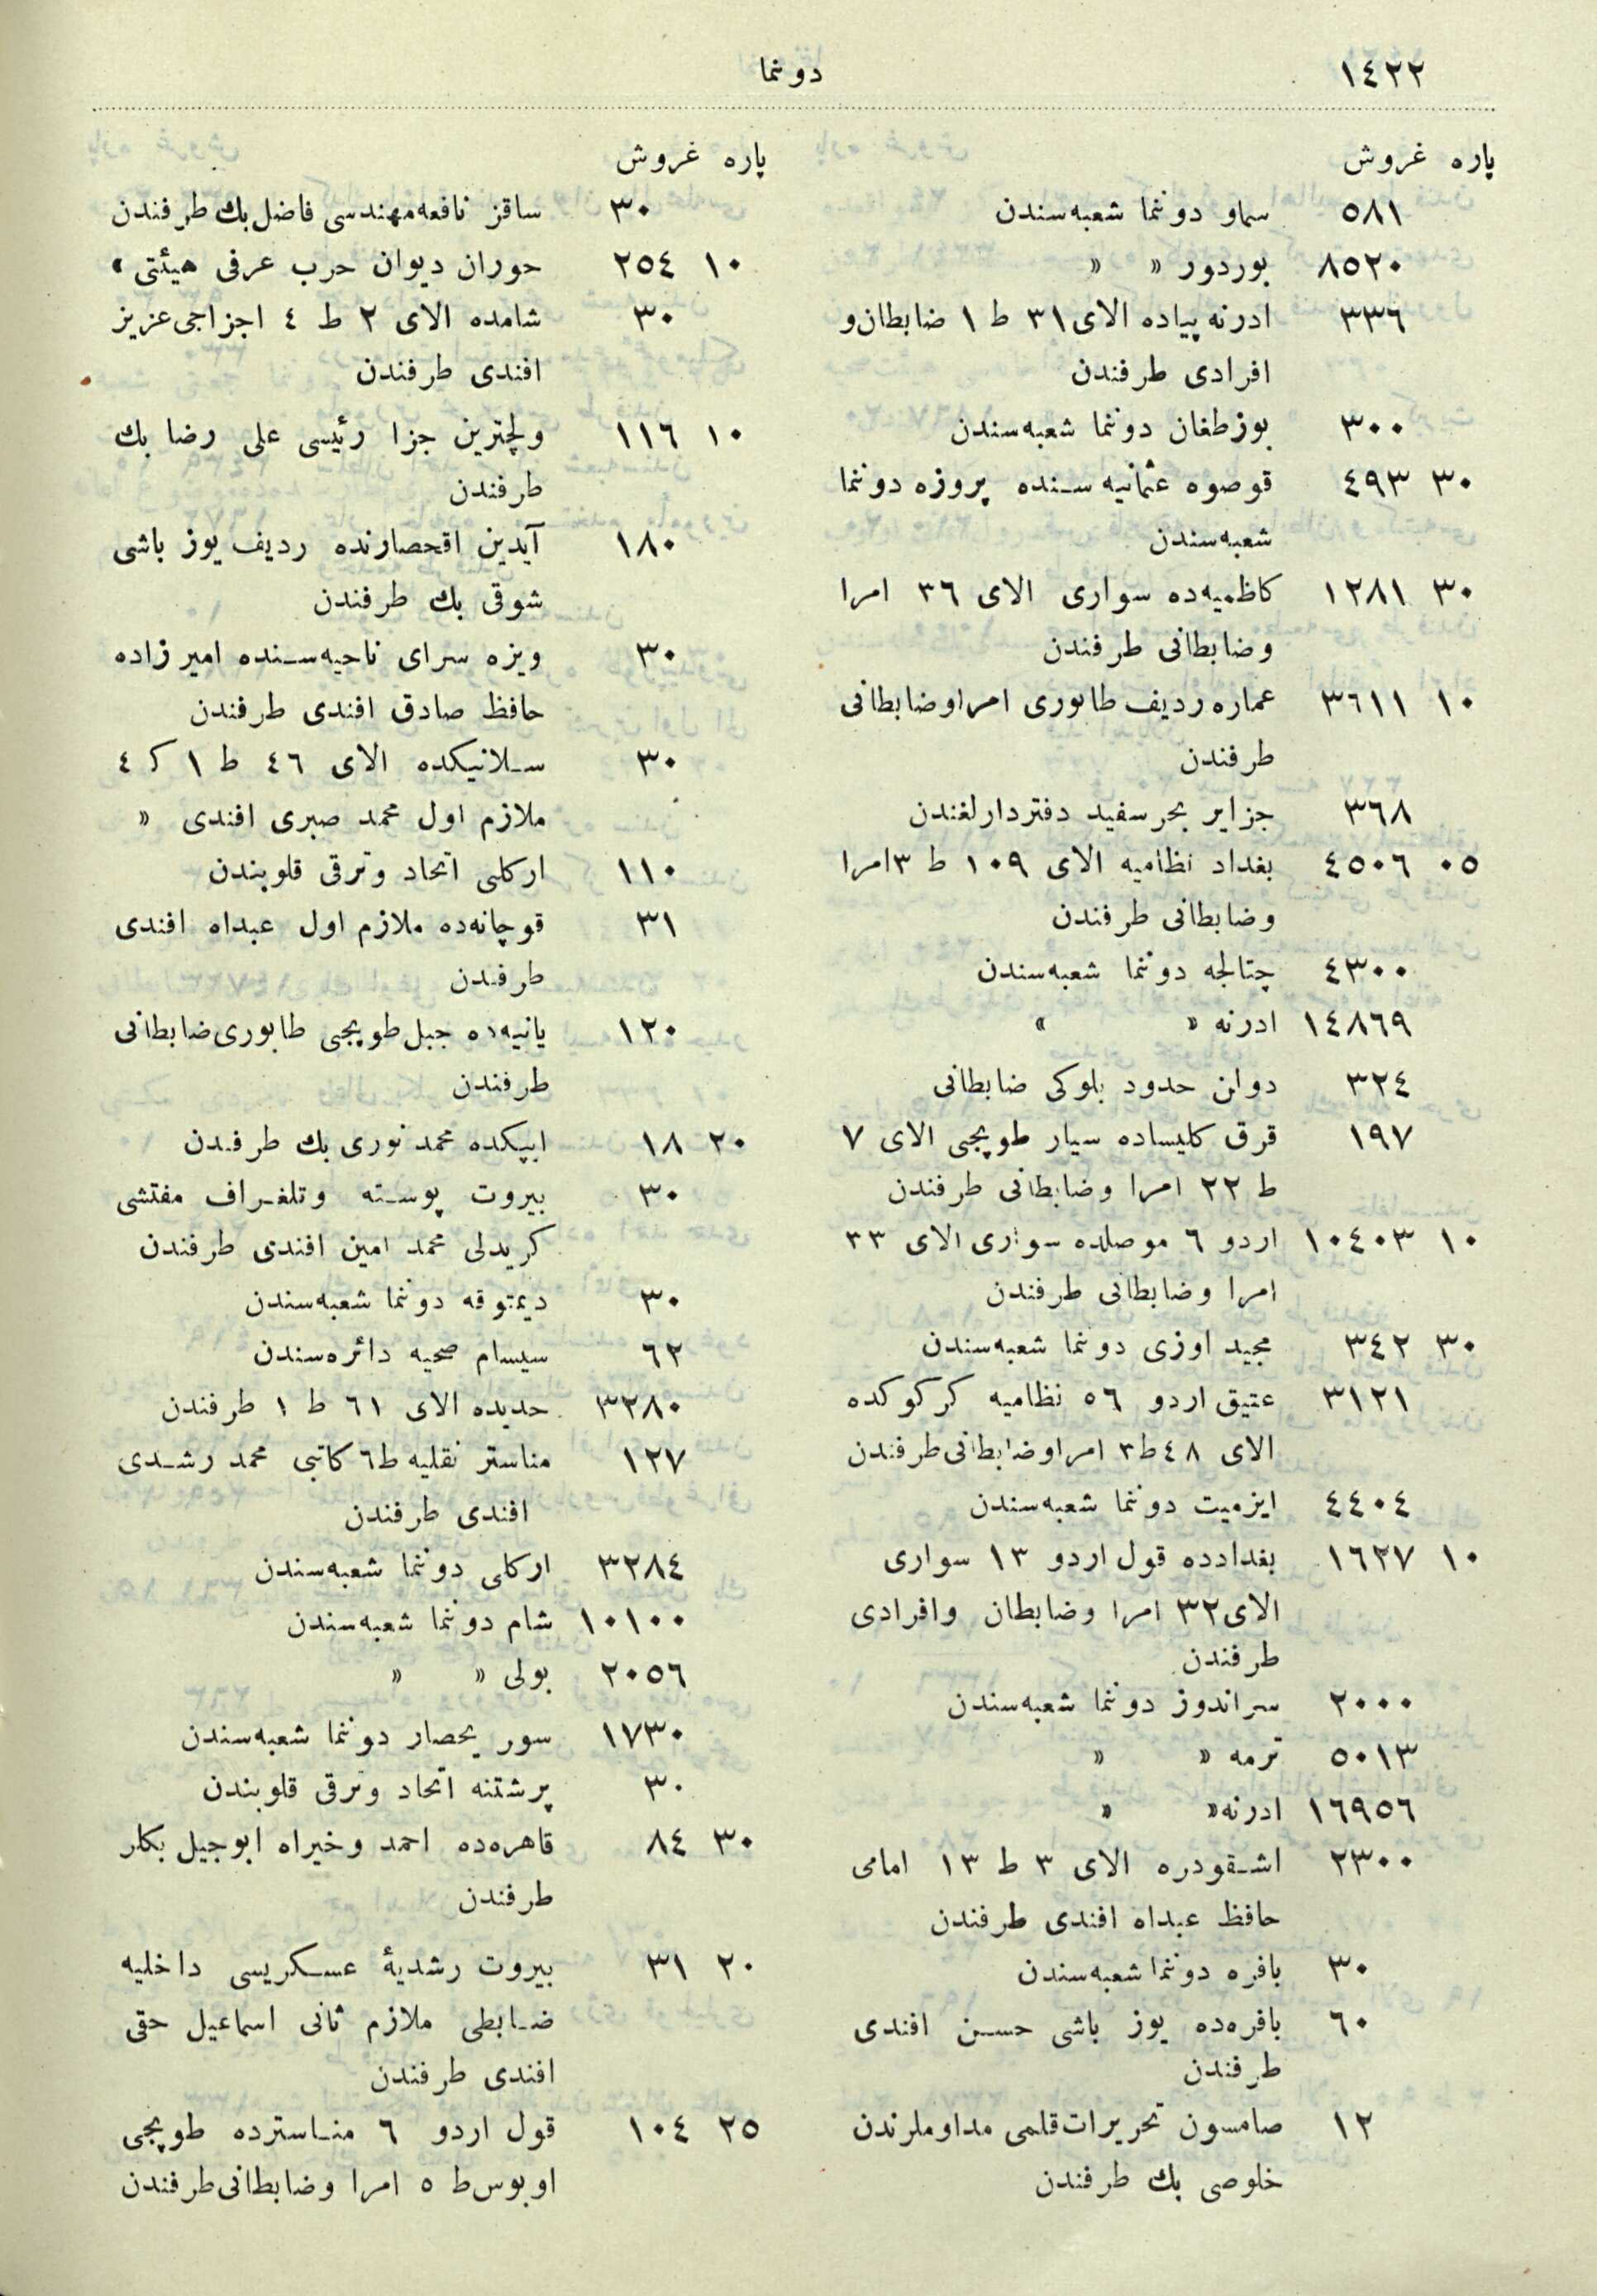 ١٤٢٢
دوننما
پاره غروش
٥٨١ سماو دوننما شعبه‌سندن
٨٥٢٠ بوردور » »
٣٣٦ ادرنه پیاده الای ٣١ ط ١ ضابطان و
افرادی طرفندن
٣٠٠ بوزطغان دوننما شعبه‌سندن
٣٠ ٤٩٣ قوصوه عثمانیه سنده پروزه دوننما
شعبه‌سندن
٣٠ ١٢٨١ کاظمیه‌ده سواری الای ٣٦ امرا
وضابطانی طرفندن
١٠ ٣٦١١ عماره ردیف طابوری امرا وضابطانی
طرفندن
٣٦٨ جزایر بحر سفید دفتردارلغندن
٠٥ ٤٥٠٦ بغداد نظامیه الای ١٠٩ ط ٣ امرا
وضابطانی طرفندن
٤٣٠٠ چتالجه دوننما شعبه‌سندن
١٤٨٦٩ ادرنه » »
٣٢٤ دوان حدود بلوکی ضابطانی
١٩٧ قرق کلیساده سیار طوپجی الای ٧
ط ٢٢ امرا وضابطانی طرفندن
١٠ ١٠٤٠٣ اردو ٦ موصلده سواری الای ٣٣
امرا وضابطانی طرفندن
٣٠ ٣٤٢ مجید اوزی دوننما شعبه‌سندن
٣١٢١ عتیق اردو ٥٦ نظامیه کرکوکده
الای ٤٨ ط ٣ امرا وضابطانی طرفندن
٤٤٠٤ ایزمیت دوننما شعبه‌سندن
١٠ ١٦٢٧ بغدادده قول اردو ١٣ سواری
الای ٣٢ امرا وضابطان وافرادی
طرفندن
٢٠٠٠ سراندوز دوننما شعبه‌سندن
٥٠١٣ ترمه » »
١٦٩٥٦ ادرنه » »
٢٣٠٠ اشقودره الای ٣ ط ١٣ امامی
حافظ عبداه افندی طرفندن
٣٠ بافره دوننما شعبه‌سندن
٦٠ بافره‌ده یوز باشی حسن افندی
طرفندن
١٢ صامسون تحریرات قلمی مداوملرندن
خلوصی بك طرفندن
پاره غروش
٣٠ ساقز نافعه مهندسی فاضل بك طرفندن
١٠ ٢٥٤ حوران دیوان حرب عرفی هیئتی »
٣٠ شامده الای ٢ ط ٤ اجزاجی عزیز
افندی طرفندن
١٠ ١١٦ ولچترین جزا رئیسی علی رضا بك
طرفندن
١٨٠ آیدین اقحصارنده ردیف یوز باشی
شوقی بك طرفندن
٣٠ ویزه سرای ناحیه‌سنده امیر زاده
حافظ صادق افندی طرفندن
٣٠ سلانیکده الای ٤٦ ط ١ ك ٤
ملازم اول محمد صبری افندی »
١١٠ ارکلی اتحاد وترقی قلوبندن
٣١ قوچانه‌ده ملازم اول عبداه افندی
طرفندن
١٢٠ یانیه‌ده جبل طوپجی طابوری ضابطانی
طرفندن
٢٠ ١٨ ایپکده محمد نوری بك طرفدن
٣٠ بیروت پوسته وتلغراف مفتشی
کریدلی محمد امین افندی طرفندن
٣٠ دیمتوقه دوننما شعبه‌سندن
٦٢ سیسام صحیه دائره‌سندن
٣٢٨٠ حدیده الای ٦١ ط ١ طرفندن
١٢٧ مناستر نقلیه ط ٦ کاتبی محمد رشدی
افندی طرفندن
٣٢٨٤ ارکلی دوننما شعبه‌سندن
١٠١٠٠ شام دوننما شعبه‌سندن
٢٠٥٦ بولی » »
١٧٣٠ سوریحصار دوننما شعبه‌سندن
٣٠ پرشتنه اتحاد وترقی قلوبندن
٣٠ ٨٤ قاهره‌ده احمد وخیراه ابوجیل بکلر
طرفندن
٢٠ ٣١ بیروت رشدیهٔ عسکریسی داخلیه
ضابطی ملازم ثانی اسماعیل حقی
افندی طرفندن
٢٥ ١٠٤ قول اردو ٦ مناسترده طوپجی
اوبوس ط ٥ امرا وضابطانی طرفندن